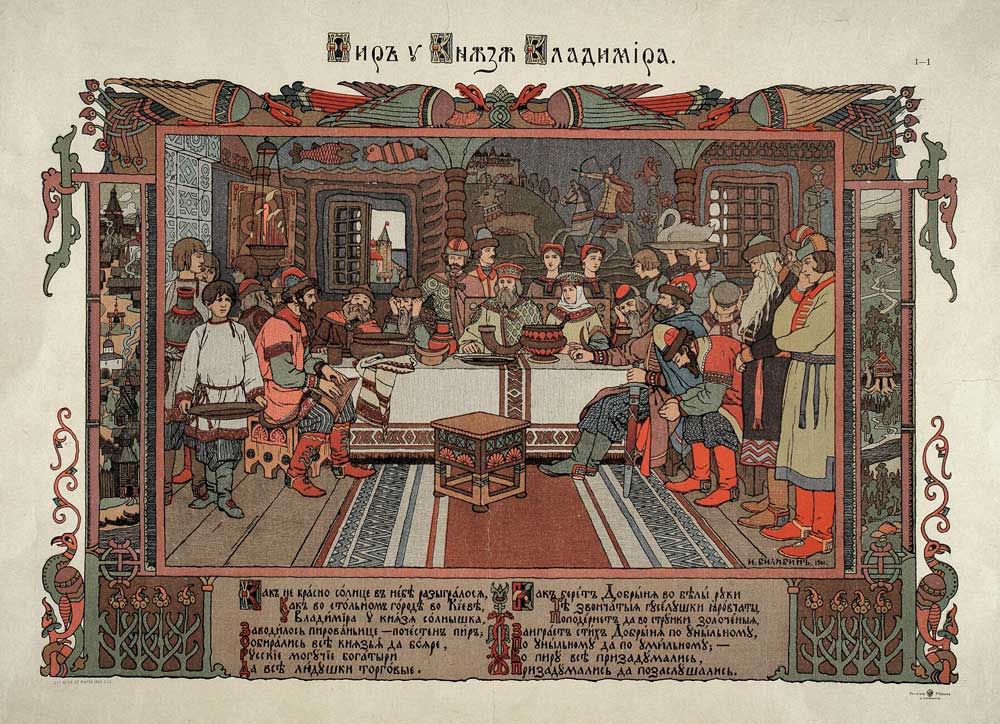 Пиръ у Кнѧзѧ Владимiра.
I—I
И. БИЛИБИНЪ.
Какъ не красно солнце въ небѣ разыгралося,
Какъ во стольномъ городѣ во Кіевѣ,
У Владиміра у князя солнышка,
Заводилось пированьице — почестенъ пиръ;
Собирались всѣ князья да бояре,
Русскіе могучіе богатыри
Да всѣ людушки торговые.
Какъ беретъ Добрыня во бѣлы руки
Тѣ звончатыя гуселушки яровчаты,
Подернетъ да во струнки золоченыя,
Заиграетъ стихъ Добрыня по уныльному,
По уныльному да по умильному; —
Во пиру всѣ призадумались,
Призадумались да позаслушались.